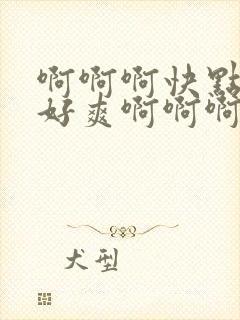 啊啊啊快點
好爽啊啊啊
犬型